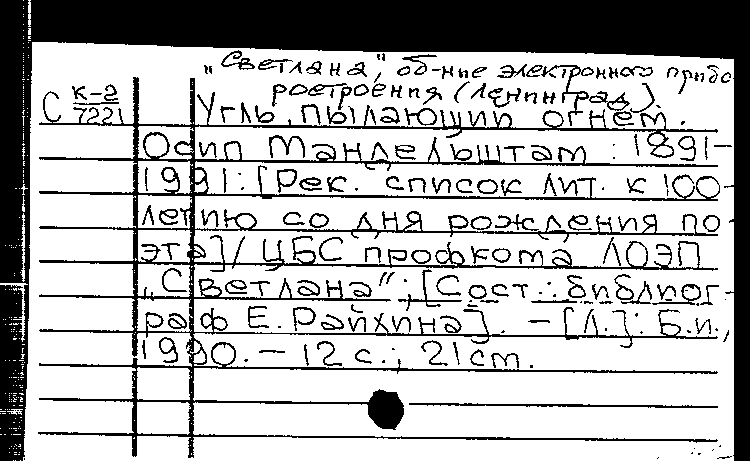 „Светлана", об-ние электронного прибо
ростроения (Ленинград).
С К-2
7221
Угль, пылающий огнём.
Осип Мандельштам : 1891-
1991: [Рек. список лит. к 100-
летию со дня рождения по-
эта] / ЦБС профкома ЛОЭП
„Светлана"; [Сост.: библиог-
раф Е. Райхина]. - [Л.]: Б.и.,
1990. - 12 с.; 21 cm.